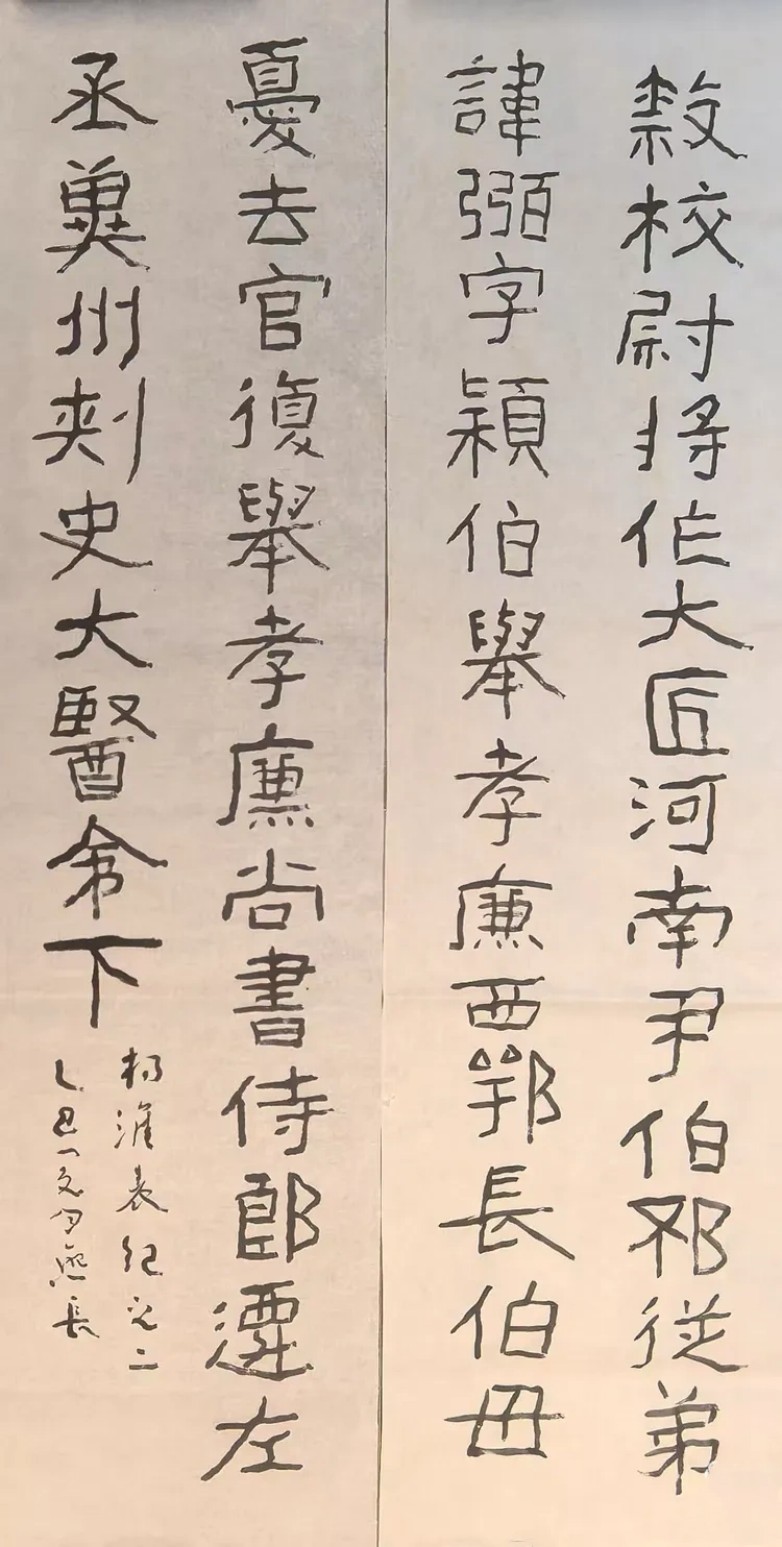 隸校尉將作大匠河南尹伯邳從弟
諱弼字穎伯舉孝廉西鄂長伯母
憂去官復舉孝廉尚書侍郎遷左
丞冀州刺史大醫令下
楊淮表紀之二
乙巳